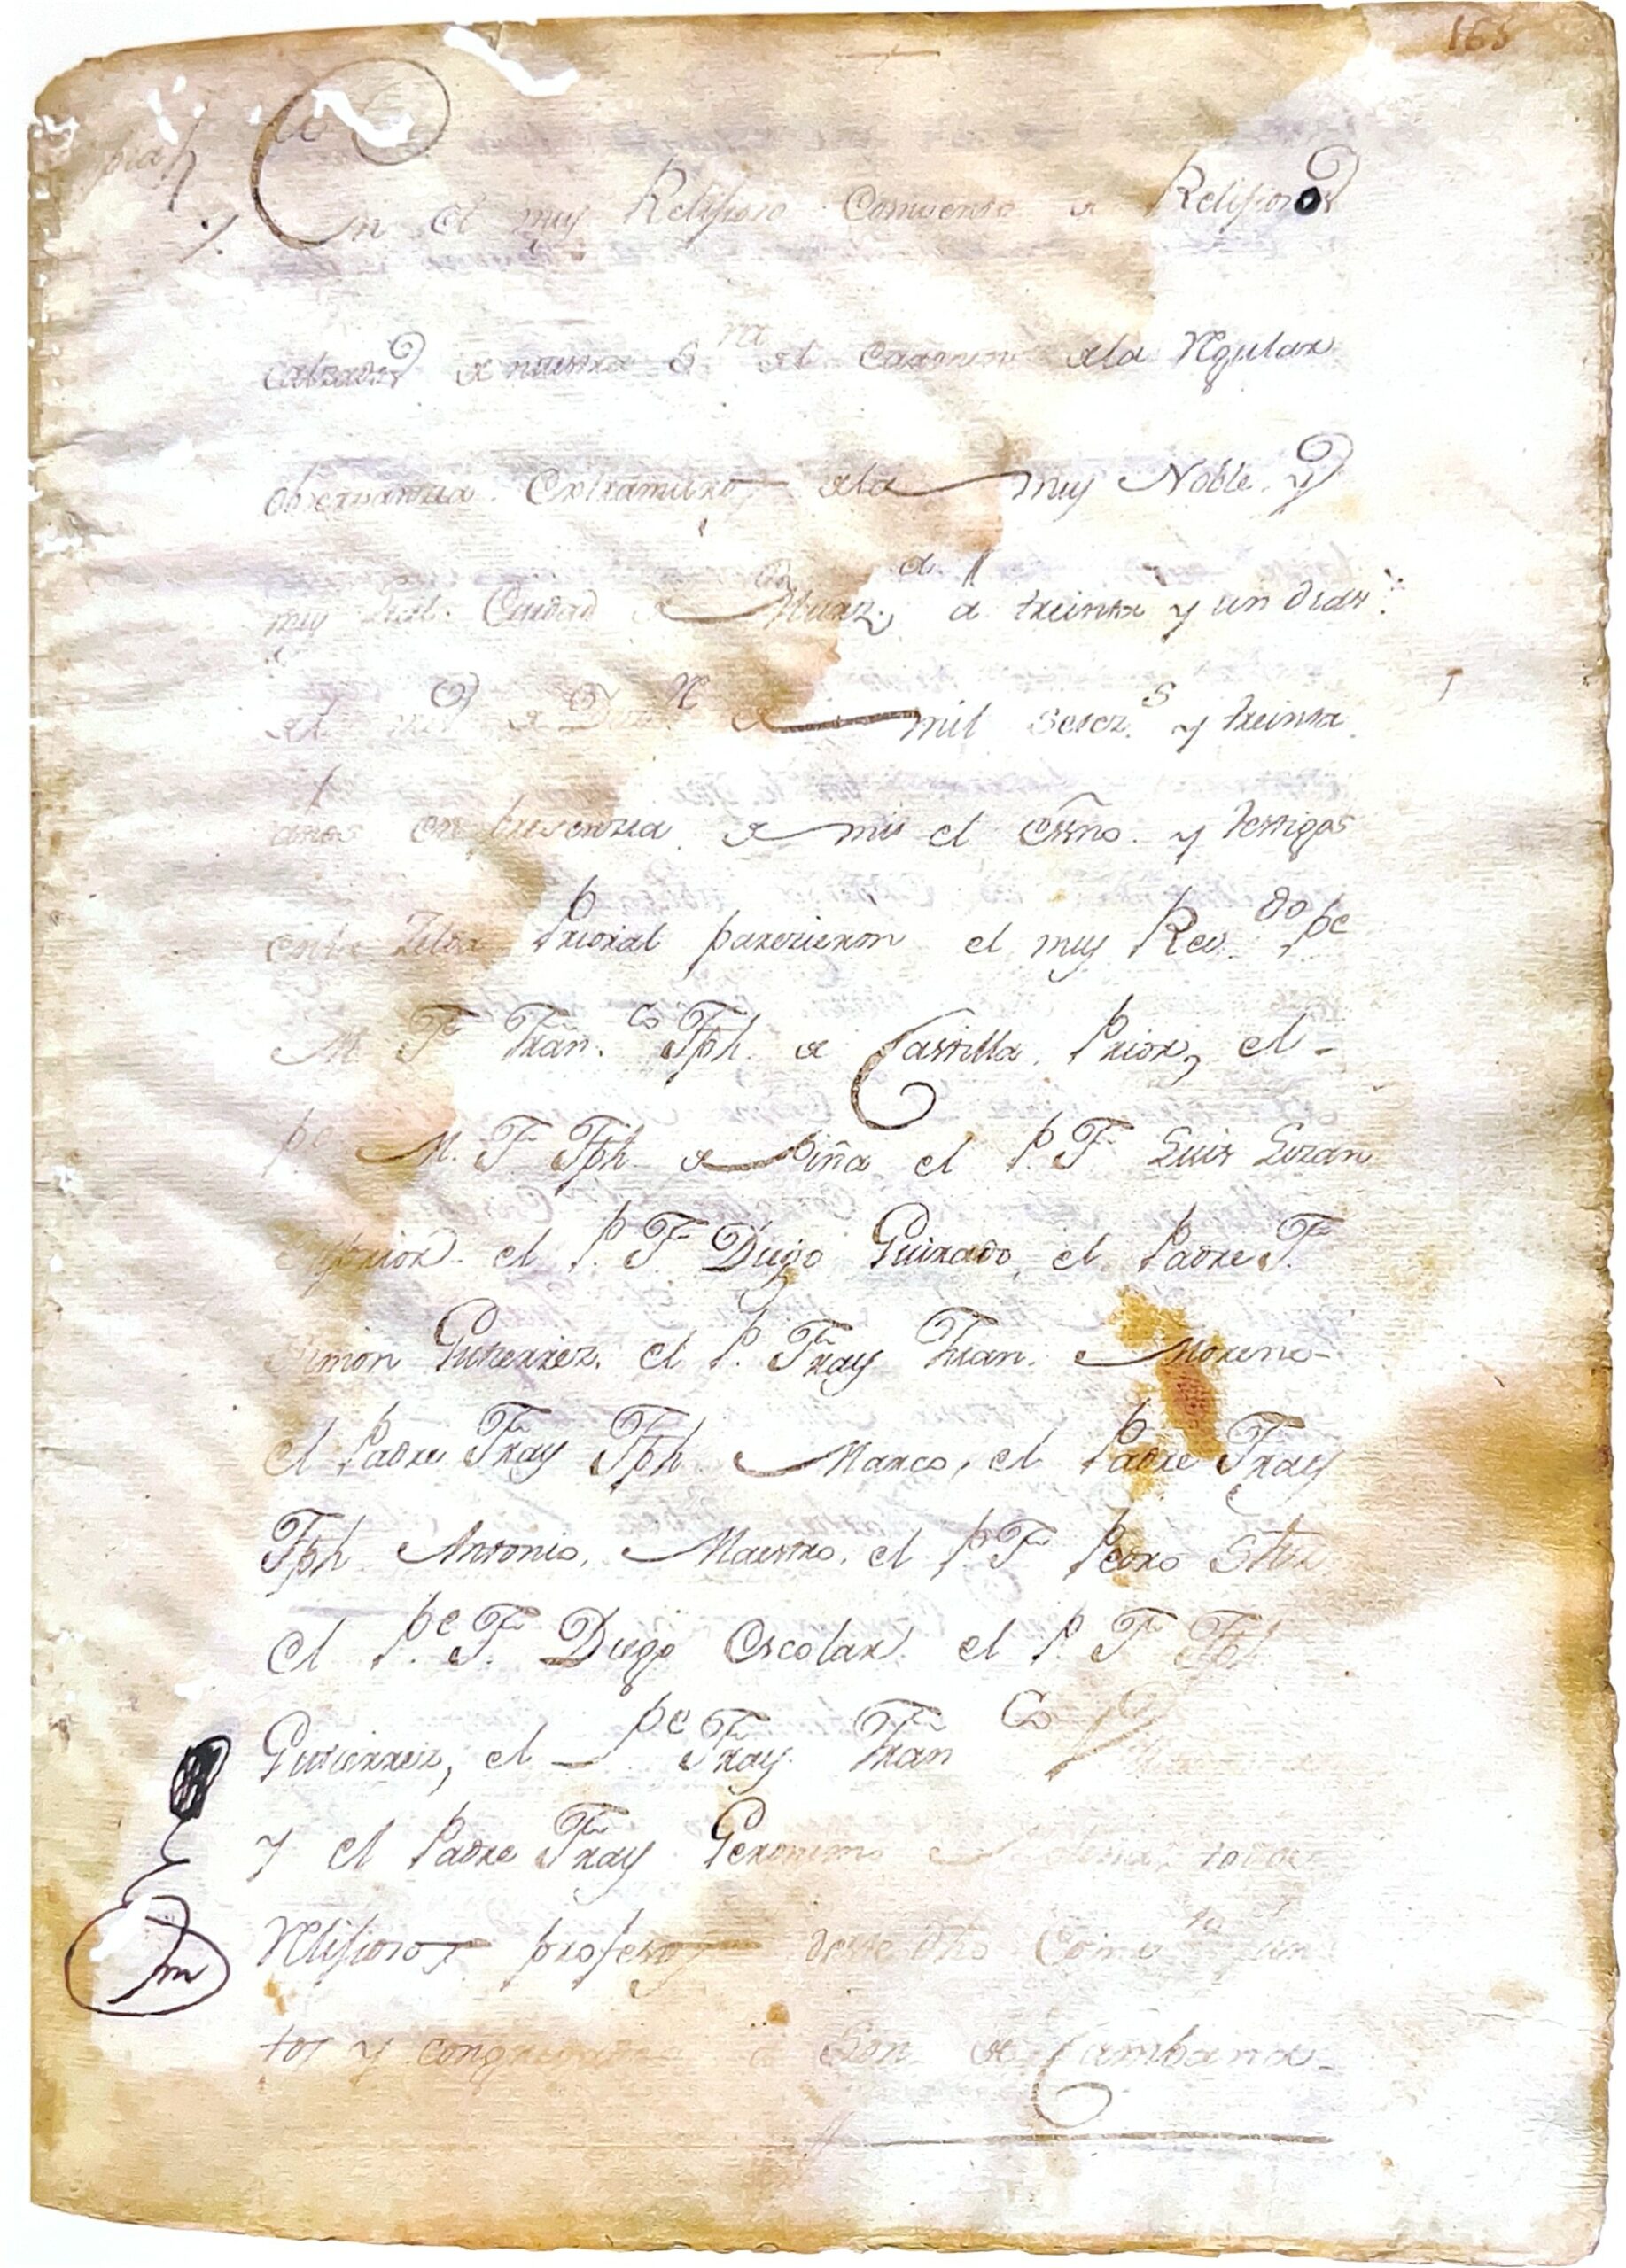 165
En el muy Relijioso Comvento de Relijiosos
calzados de nuestra S.ra del Carmen dela Regular
obserbanzia Extramuros dela muy Noble y
muy Leal Ciudad de a treinta y un dias
del mes de D.re de mil setez.s y treinta
años en presenzia de mi el essno. y testigos
enla Zelda Prioral parezieron el muy Rev.do P.e
M. F. Fran.co Jph. de Castilla Prior, el
P.e M. F. Jph. de Piña el P. F. Luis Lozan
Suprior el P. F. Diego Guirado, el Padre F.
Simon Gutierrez. el P. Fray Fran. Moreno
el Padre Fray Jph. Marco, el Padre Fray
Jph Antonio, Maestro. el P. F. Pedro
el P.e F. Diego Escolar el P. F. Jph
Gutierrez, el P.e Fray Fran.co
y el Padre Fray Geronimo todos
Relijiosos profesos deste dho Comv.to Jun
tos y congregados a Son de Campana